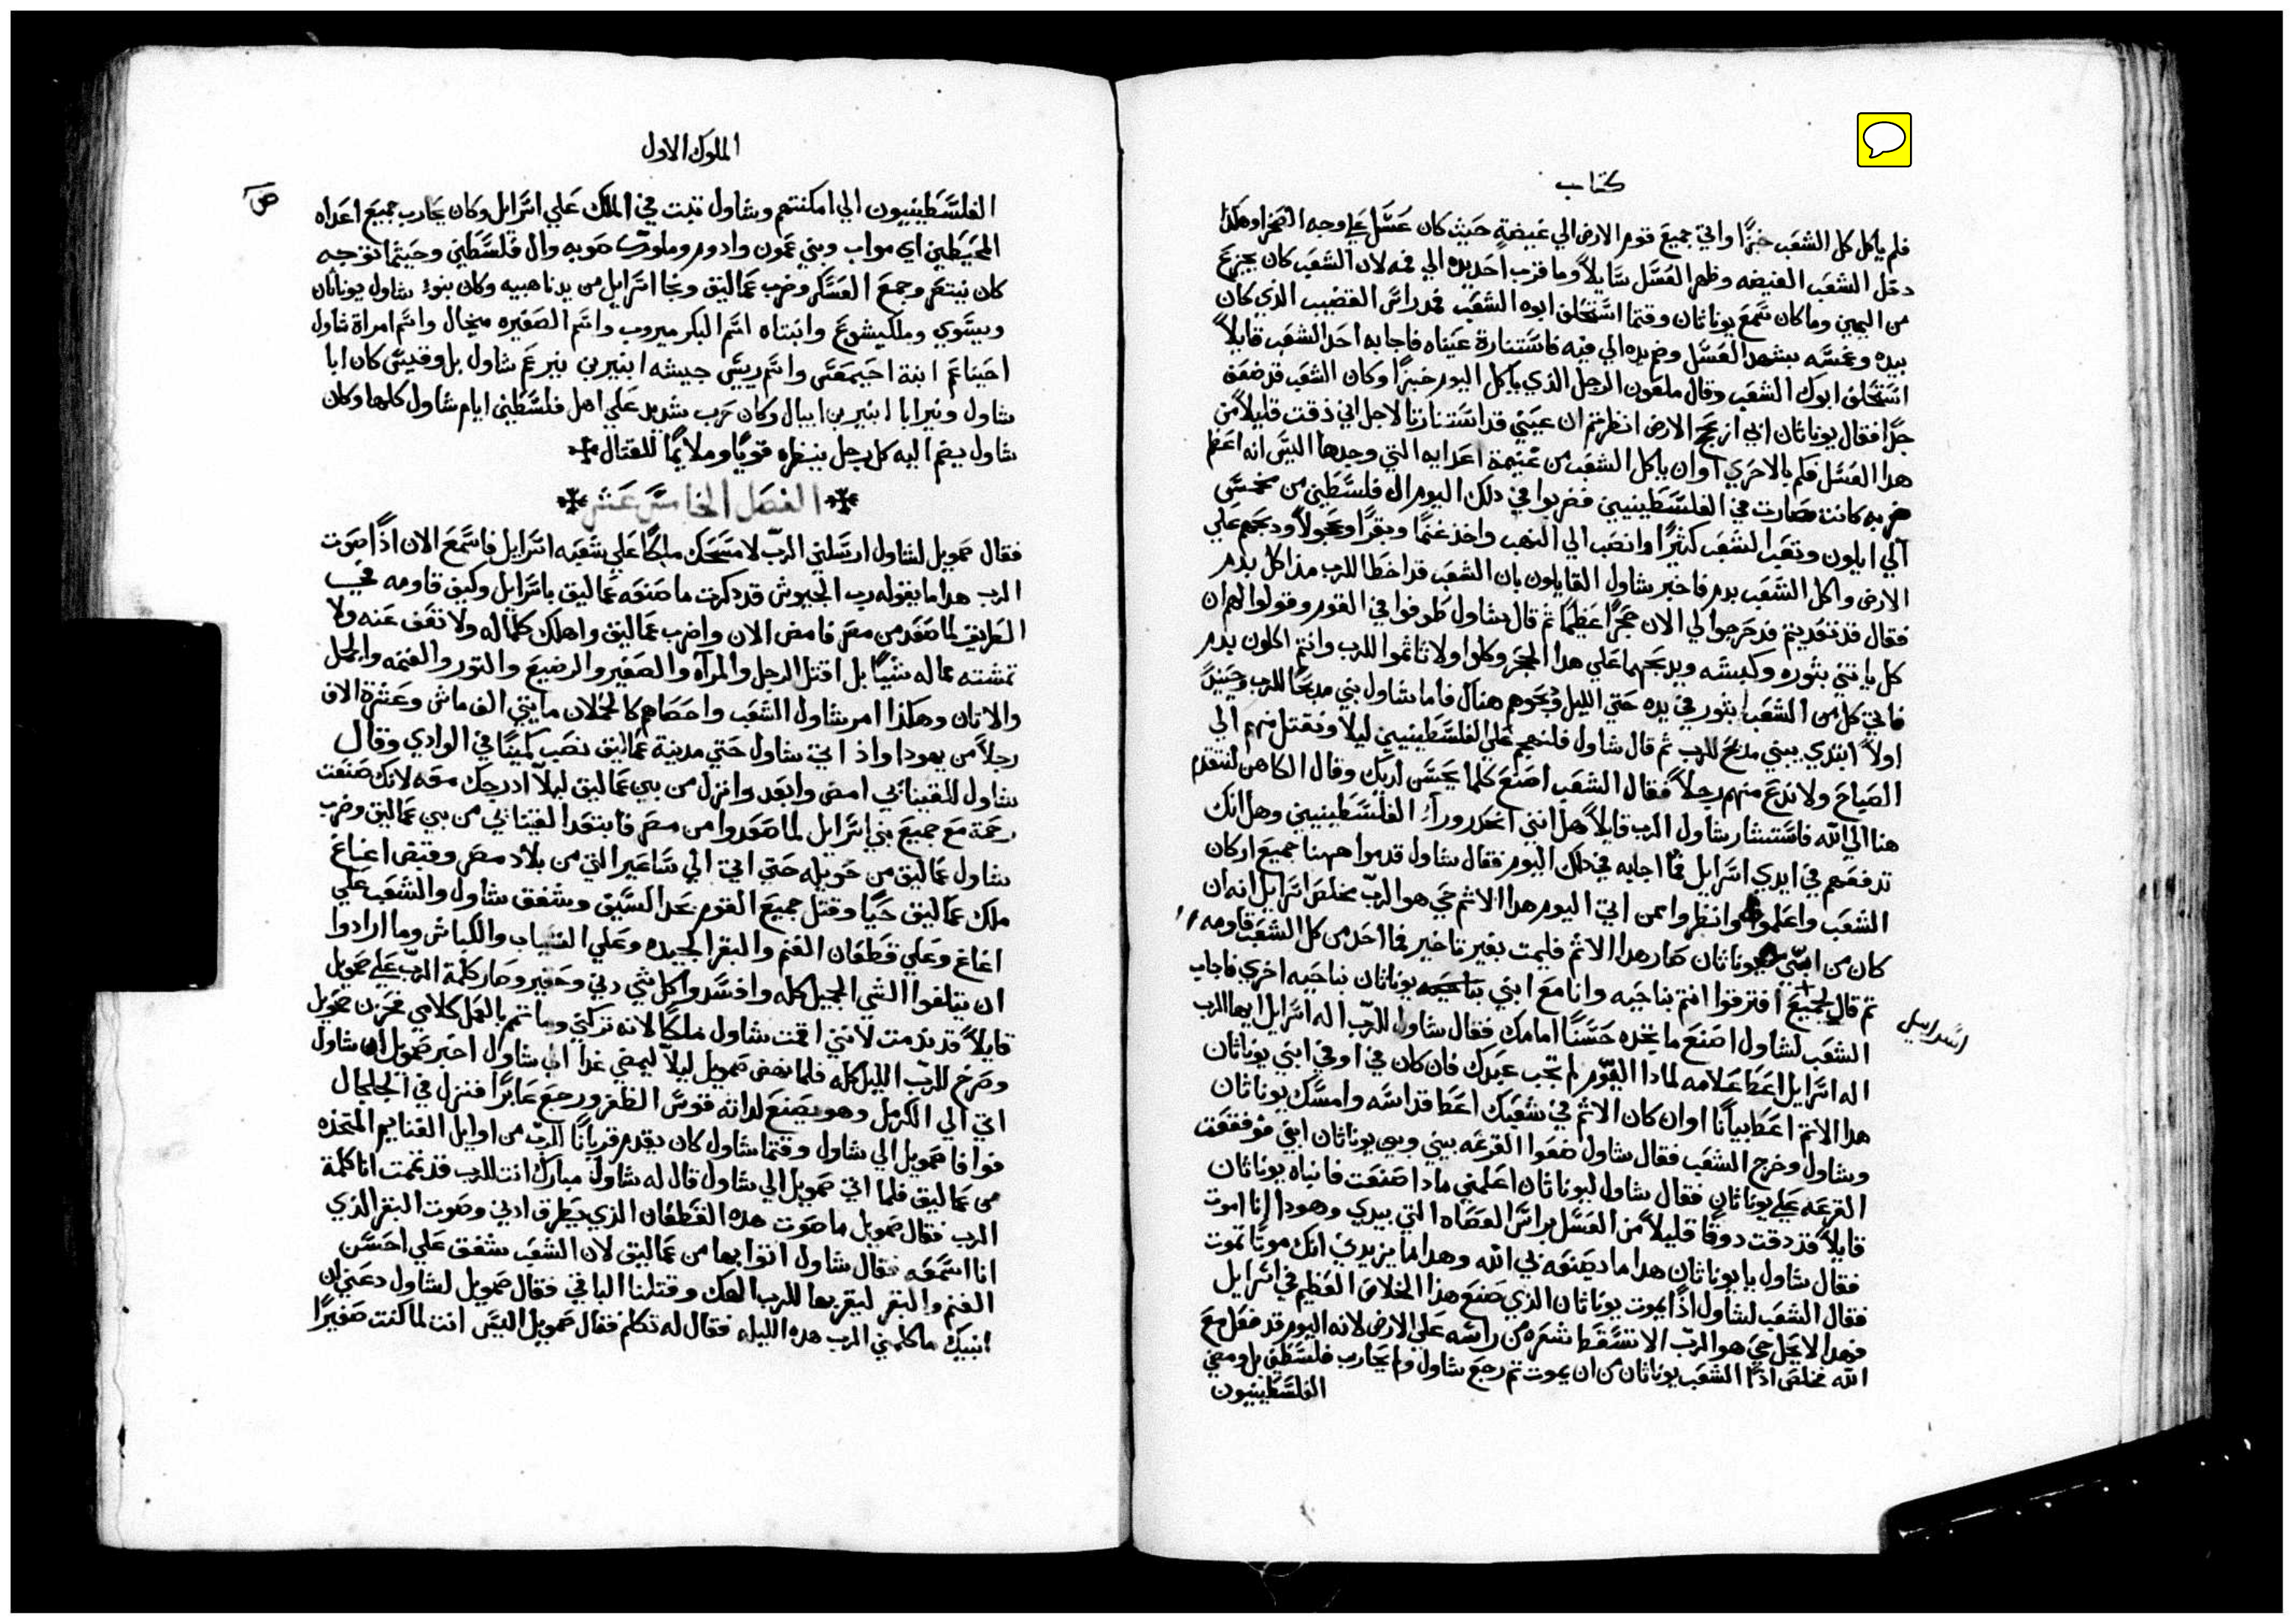 كتاب
فلم ياكل كل الشعب خبزًا واتي جميع قوم الارض الي غيضةٍ حيث كان عسل علي وجه الصحرا وهكذا
دخل الشعب الغيضه وظهر العسل سايلاً وما قرب احد يده الي فمه لان الشعب كان يجزع
من اليمين وما كان سمع يوناثان وقتما استحلف ابوه الشعب فمد راس القضيب الذي كان
بيده وغمسه بشهد العسل وضم يده الي فيه فاستنارة عيناه فاجابه احد الشعب قايلاً
استحلف ابوك الشعب وقال ملعون الرجل الذي ياكل اليوم خبزًا وكان الشعب قد ضعف
جدًا فقال يوناثان ابي ازعج الارض انظرتم ان عيني قد استنارتا لاجل اني ذقت قليلاً من
هدا العسل فكم بالاحري اوان ياكل الشعب من غنيمة اعدايه التي وجدها اليس انه اعظم
ضربه كانت صارت في الفلسطينيين فضربوا في دلك اليوم ال فلسطين من مخمس
الي ايلون وتعب الشعب كثيرًا وانصب الي النهب واخذ غنمًا وبقرًا وعجولاً ودبحهم علي
الارض واكل الشعب بدم فاخبر شاول القايلون بان الشعب قد اخطا للرب مذ اكل بدم
فقال قد تعديتم فدحرجوا لي الان حجرًا عظيمًا ثم قال شاول طوفوا في القوم وقولوا لهم ان
كل ياتني بثوره وكبشه ويدبحهما علي هدا الحجر وكلوا ولا تاثموا للرب وانتم اكلون بدم
فاتي كل من الشعب بثور في يده حتي الليل ودبحوهم هناك فاما شاول بني مدبحًا للرب وحينيدٍ
اولاً ابتدي يبني مدبح للرب ثم قال شاول فلنهجم علي الفلسطينيين ليلاً ونقتل منهم الي
الصباح ولا ندع منهم رجلاً فقال الشعب اصنع كلما يحسن لديك وقال الكاهن لنتقدم
هنا الي الله فاستشار شاول الرب قايلاً هل انني انحدر ورآء الفلسطينيين وهل انك
تدفعهم في ايدي اسرايل فما اجابه في دلك اليوم فقال شاول قدموا ههنا جميع اركان
الشعب واعلموا وانظروا بمن اتي اليوم هدا الاثم حي هو الرب مخلص اسرايل انه ان
كان من ابني يوناثان صار هدا الاثم فليمت بغير تاخير فما احد من كل الشعب قاومه
ثم قال لجميع افترقوا انتم بناحيه وانا مع ابني يوناثان بناحيه اخري فاجاب
اسراييل
الشعب لشاول اصنع ما يحده حسنًا امامك فقال شاول للرب اله اسرايل ايها الرب
اله اسرايل اعط علامه لمادا اليوم لم تجب عبدك فان كان في او في ابني يوناثان
هدا الاثم اعط بيانًا اوان كان الاثم في شعبك اعط قداسه وامسك يوناثان
وشاول وخرج الشعب فقال شاول ضعوا القرعه بيني وبين يوناثان ابني فوقعت
القرعه علي يوناثان فقال شاول ليوناثان اعلمني مادا صنعت فانباه يوناثان
قايلاً قد دقت دوقًا قليلاً من العسل براس العصاه التي بيدي وهودا انا اموت
فقال شاول يا يوناثان هدا ما يصنعه بي الله وهدا ما يزيدني انك موتًا تموت
فقال الشعب لشاول ادًا يموت يوناثان الذي صنع هذا الخلاص العظيم في اسرايل
فهدا لا يحل حي هو الرب لا تسقط شعره من راسه علي الارض لانه اليوم قد فعل مع
الله فخلص ادًا الشعب يوناثان من ان يموت ثم رجع شاول ولم يحارب فلسطين بل ومضي
الفلسطينيون
الملوك الاول
ص
الفلسطينيون الي امكنتهم وشاول تبت في الملك علي اسرايل وكان يحارب جميع اعداه
المحيطين اي مواب وبني عمون وادوم وملوك صوبه وال فلسطين وحيثما توجه
كان ينتصر وجمع العسكر وضرب عماليق ونجا اسرايل من يد ناهبيه وكان بنو شاول يوناثان
ويسوي وملكيشوع وابنتاه اسم البكر ميروب واسم الصغيره ميخال واسم امراة شاول
احيناعم ابنة احيمعص واسم ريس جيشه ابنير بن نير عم شاول بل وقيس كان ابا
شاول ونير ابا ابنير بن ابيال وكان حرب شديد علي اهل فلسطين ايام شاول كلها وكان
شاول يضم اليه كل رجل ينظره قويًا وملايمًا للقتال
الفصل الخامس عشر
فقال صمويل لشاول ارسلني الرب لامسحك ملكًا علي شعبه اسرايل فاسمع الان اذًا صوت
الرب هدا ما يقوله رب الجيوش قد دكرت ما صنعه عماليق باسرايل وكيف قاومه في
الطريق لما صعد من مصر فامض الان واضرب عماليق واهلك كلما له ولا تعف عنه ولا
تشته مما له شيًا بل اقتل الرجل والمرآه والصغير والرضيع والثور والغنمه والجمل
والاتان وهكذا امر شاول الشعب واحصاهم كالحملان مايتي الف ماش وعشرة الاف
رجلاً من يهودا واذ اتي شاول حتي مدينة عماليق نصب كمينًا في الوادي وقال
شاول للقيناني امض وابعد وانزل من بين عماليق ليلاً ادرجك معه لانك صنعت
رحمة مع جميع بني اسرايل لما صعدوا من مصر فابتعد القيناني من بين عماليق وضرب
شاول عماليق من حويله حتي اتي الي ساعير التي من بلاد مصر وقبض اغاغ
ملك عماليق حيًا وقتل جميع القوم بحد السيف وشفق شاول والشعب علي
اغاغ وعلي قطعان الغنم والبقر الجيده وعلي التياب والكباش وما ارادوا
ان يتلفوا الشي الجميل كله وافسدوا كل شي دني وحقير وصار كلمة الرب علي صمويل
قايلاً قد ندمت لانني اقمت شاول ملكًا لانه تركني وما تمم بالعمل كلامي فحزن صمويل
وصرخ للرب الليل كله فلما نهض صمويل ليلاً ليمضي غدا الي شاول اخبر صمويل ان شاول
اتي الي الكرمل وهو يصنع لداته قوس الظفر ورجع عابرًا فنزل في الجلجال
فوافا صمويل الي شاول وقتما شاول كان يقدم قربانًا للرب من اوايل الغنايم المتخذه
من عماليق فلما اتي صمويل الي شاول قال له شاول مبارك انت للرب قد تممت انا كلمة
الرب فقال صمويل ما صوت هده القطعان الذي يطرق ادني وصوت البقر الذي
انا اسمعه فقال شاول اتوا بها من عماليق لان الشعب شفق علي احسن
الغنم والبقر ليقربها للرب الهك وقتلنا الباقي فقال صمويل لشاول دعني ان
انبيك ما كلمني الرب هده الليله فقال له تكلم فقال صمويل اليس انت لما كنت صغيرًا